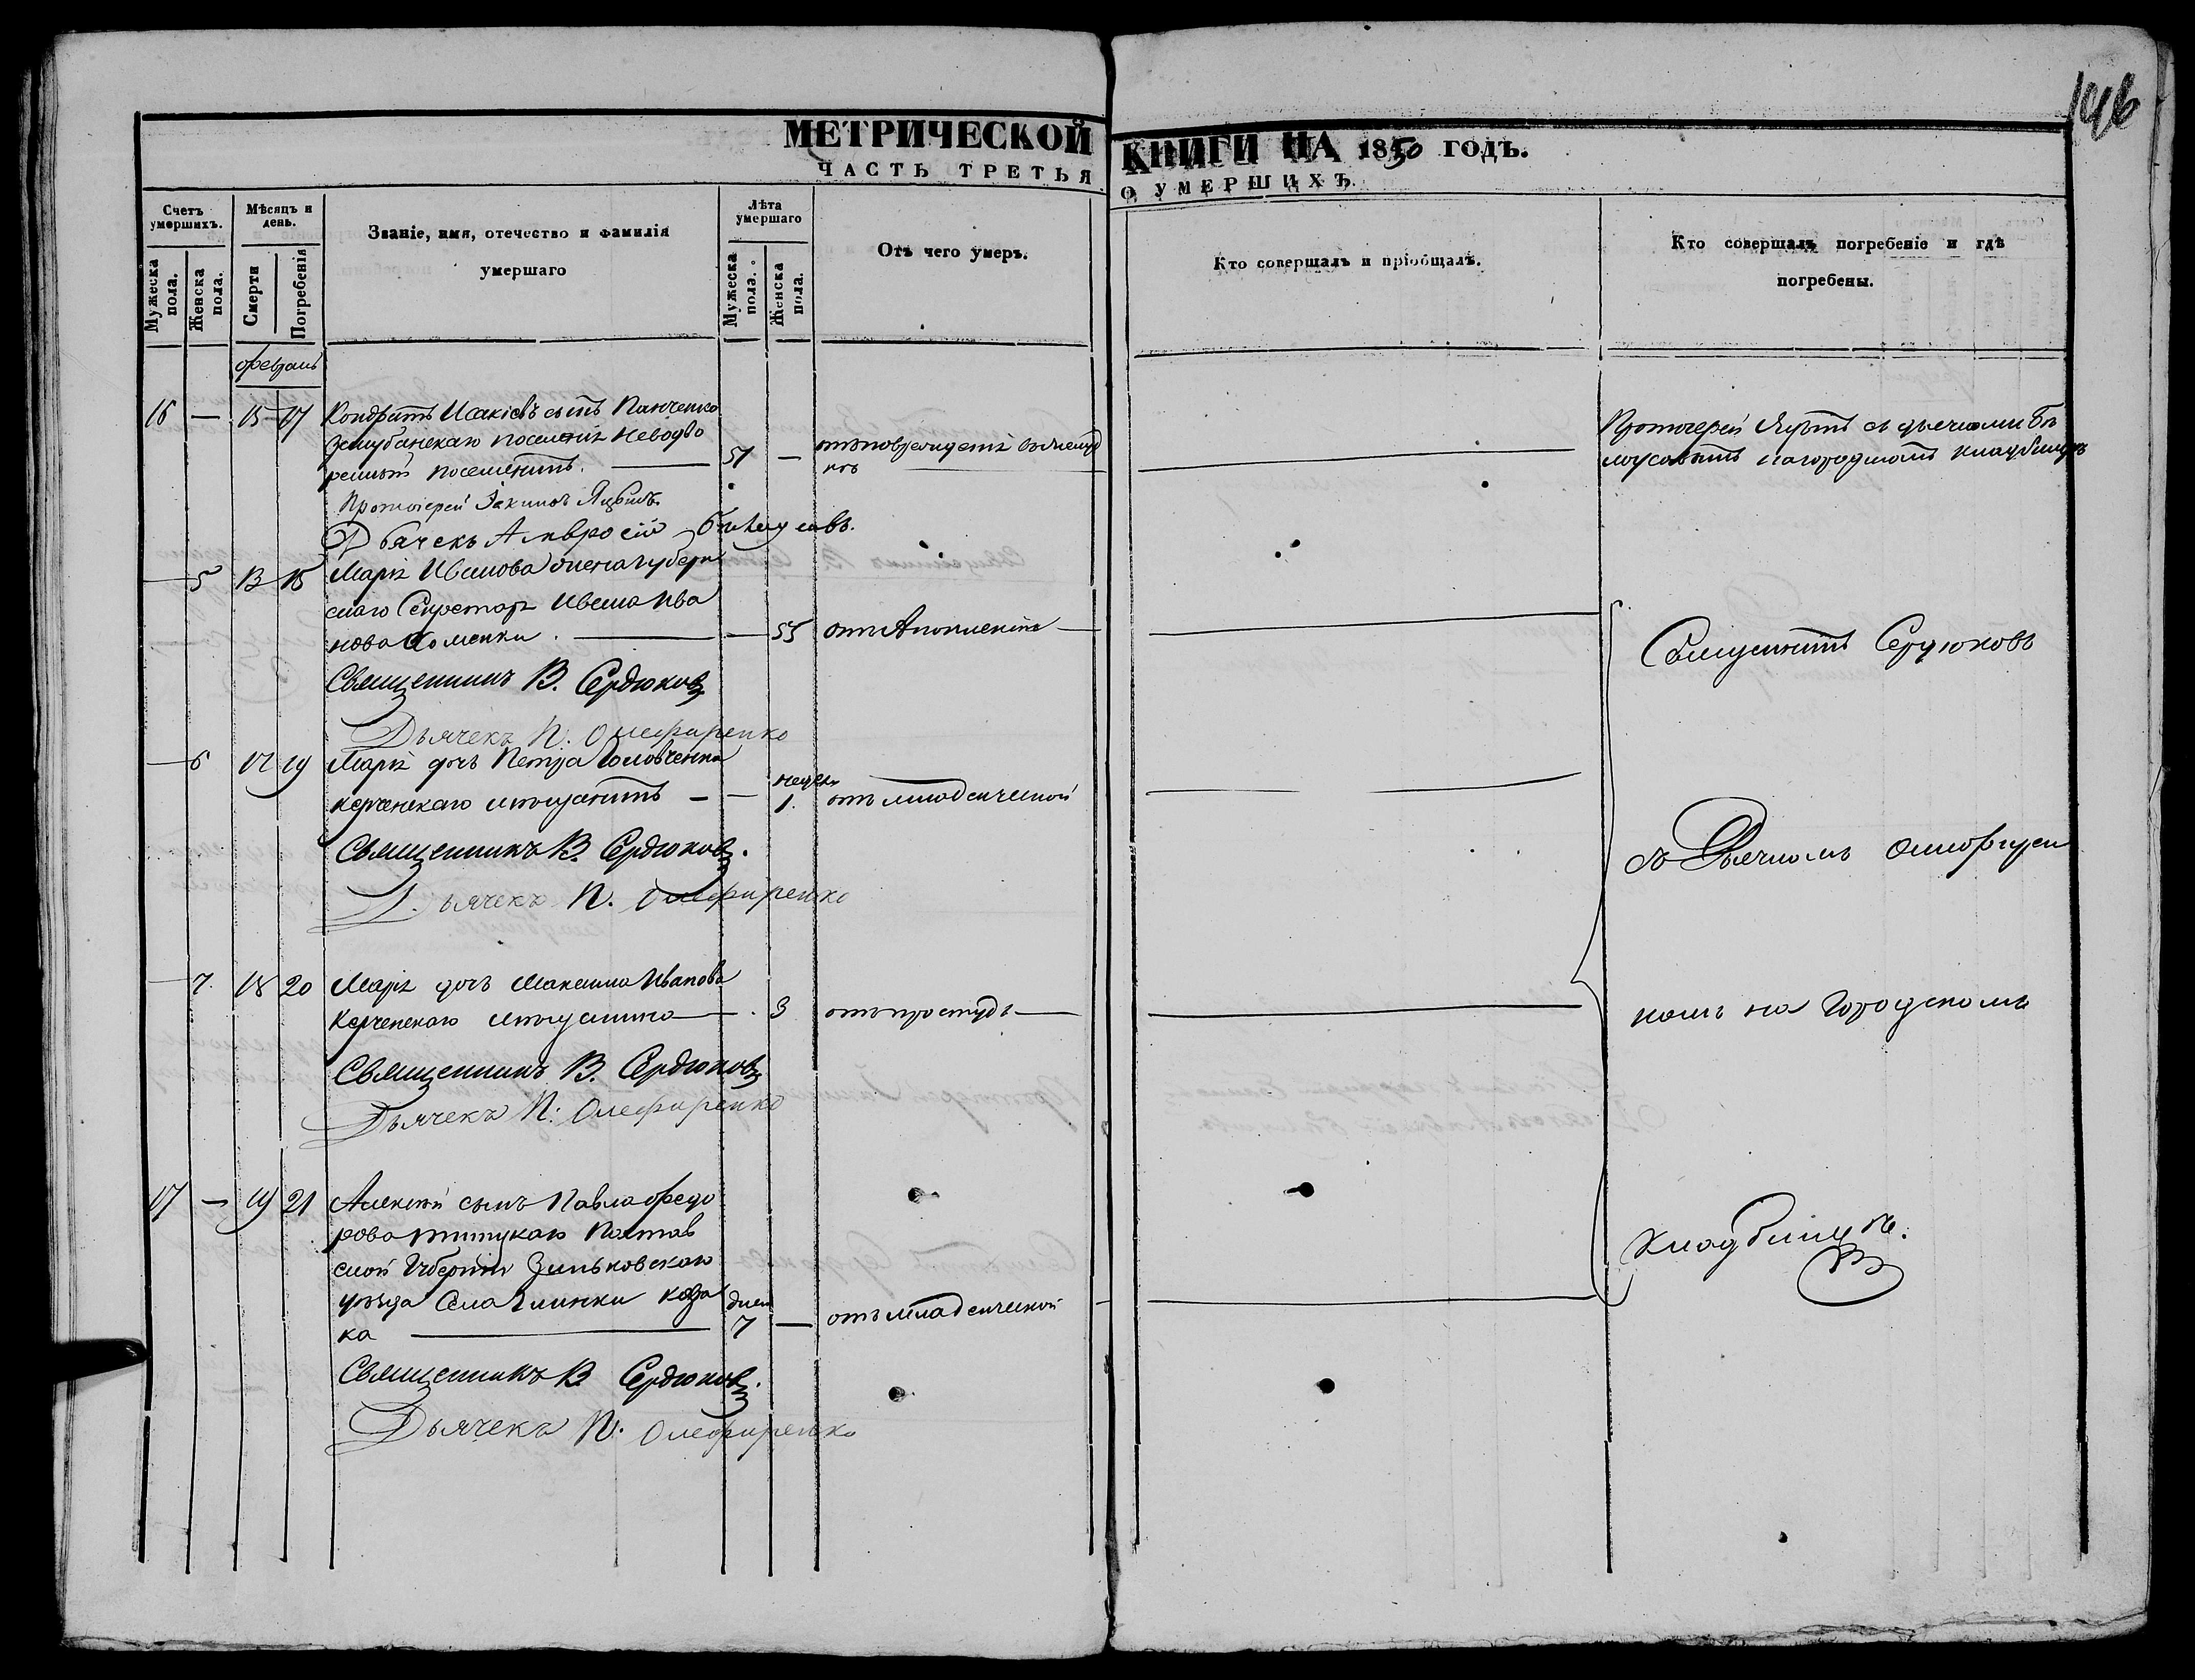 146
МЕТРИЧЕСКОЙ КНИГИ НА 1850 ГОДЪ.
ЧАСТЬ ТРЕТЬЯ О УМЕРШИХЪ.
Счетъ умершихъ.
Мужеска пола.
Женска пола.
Мѣсяцъ и день.
Смерти
Погребенія
Званіе, имя, отечество и фамилія умершаго
Лѣта умершаго
Мужеска пола.
Женска пола.
Отъ чего умеръ.
Кто совершалъ и пріобщалъ.
Кто совершалъ погребеніе и гдѣ погребены.
февраль
16 — 15 17 Кондратъ Исакіевъ сынъ Панченко
поселенія
поселенитъ. 51 —
Протоіерей Іакимъ Яцынъ
Дьячекъ Амвросій Бѣлоусовъ.
Протоіерей съ дьячкомъ Бѣ
лоусовымъ на городскомъ кладбищѣ
— 5 13 15 Марія Иванова жена губерн
скаго Секретаря Ивана Ива
нова Хоменки. — 55 отъ Апоплексіи
Священникъ В. Сердюковъ
Дьячекъ П. Олефиренко
— 6 17 19 Марія дочь Петра Головченка
керченскаго мѣщанина — недѣли 1. отъ младенческой
Священникъ В. Сердюковъ.
Дьячекъ П. Олефиренко
— 7. 18 20 Марія дочь Максима Иванова
Керченскаго мѣщанина — 3 отъ простуды
Священникъ В. Сердюковъ
Дьячекъ П. Олефиренко
17 — 19 21 Алексѣй сынъ Павла Федо
рова Полтав
ской Губерніи Зиньковскаго
уѣзда Села Глинки коза
ка дней 7 — отъ младенческой
Священникъ В. Сердюковъ.
Дьячекъ П. Олефиренко
Священникъ Сердюковъ
съ Дьячкомъ Олефирен
комъ на Городскомъ
Кладбищѣ.